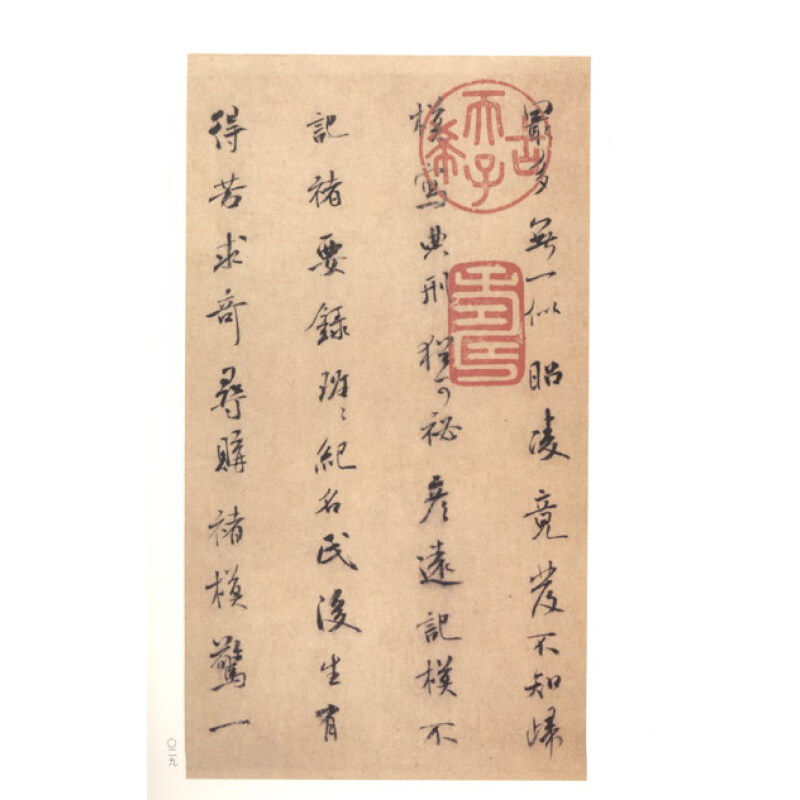 最多無一似昭陵竟發不知歸
模寫典刑猶可祕彥遠記模不
記褚要錄班〻紀名氏後生有
得苦求奇尋購褚模驚一
古希天子
壽
〇二九